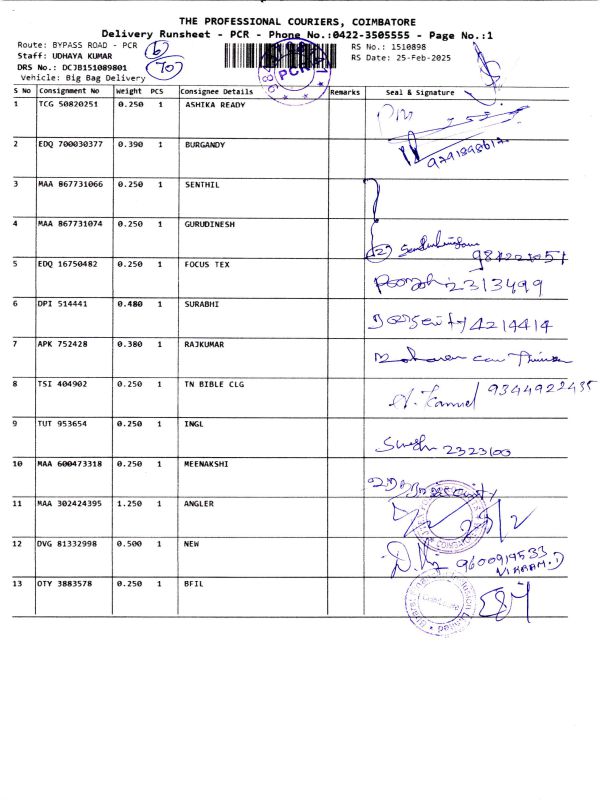 THE PROFESSIONAL COURIERS, COIMBATORE
Delivery Runsheet - PCR - Phone No.:0422-3505555 - Page No.:1
Route: BYPASS ROAD - PCR 6 RS No.: 1510898
Staff: UDHAYA KUMAR RS Date: 25-Feb-2025
DRS No.: DCJB151089801 70
Vehicle: Big Bag Delivery
PCR
S No Consignment No Weight PCS Consignee Details Remarks Seal & Signature
1 TCG 50820251 0.250 1 ASHIKA READY
2 EDQ 700030377 0.390 1 BURGANDY
3 MAA 867731066 0.250 1 SENTHIL
4 MAA 867731074 0.250 1 GURUDINESH (2)
5 EDQ 16750482 0.250 1 FOCUS TEX 2313499
6 DPI 514441 0.480 1 SURABHI 4214414
7 APK 752428 0.380 1 RAJKUMAR
8 TSI 404902 0.250 1 TN BIBLE CLG 9344922435
9 TUT 953654 0.250 1 INGL 2323100
10 MAA 600473318 0.250 1 MEENAKSHI
11 MAA 302424395 1.250 1 ANGLER
12 DVG 81332998 0.500 1 NEW 9600919533
VIKRAM.D
13 OTY 3883578 0.250 1 BFIL